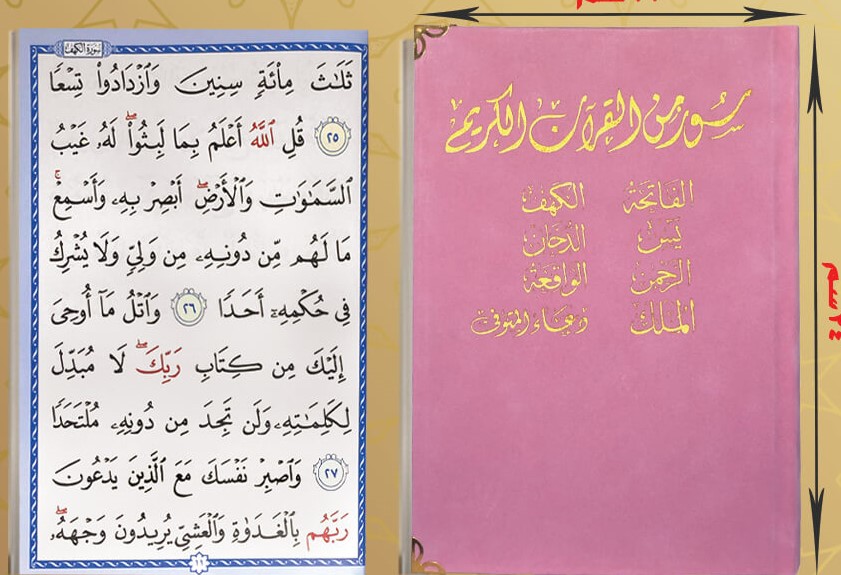 سورة الكهف
ثَلَٰثَ مِاْئَةٖ سِنِينَ وَٱزْدَادُواْ تِسْعٗا
٢٥ قُلِ ٱللَّهُ أَعْلَمُ بِمَا لَبِثُواْۖ لَهُۥ غَيْبُ
ٱلسَّمَٰوَٰتِ وَٱلْأَرْضِۖ أَبْصِرْ بِهِۦ وَأَسْمِعْۚ
مَا لَهُم مِّن دُونِهِۦ مِن وَلِيّٖ وَلَا يُشْرِكُ
فِي حُكْمِهِۦٓ أَحَدٗا ٢٦ وَٱتْلُ مَآ أُوحِيَ
إِلَيْكَ مِن كِتَابِ رَبِّكَۖ لَا مُبَدِّلَ
لِكَلِمَٰتِهِۦ وَلَن تَجِدَ مِن دُونِهِۦ مُلْتَحَدٗا
٢٧ وَٱصْبِرْ نَفْسَكَ مَعَ ٱلَّذِينَ يَدْعُونَ
رَبَّهُم بِٱلْغَدَوٰةِ وَٱلْعَشِيِّ يُرِيدُونَ وَجْهَهُۥۖ
سور من القرآن الكريم
الفاتحة الكهف
يس الدخان
الرحمن الواقعة
الملك دعاء المتوفى
٢٤ سم